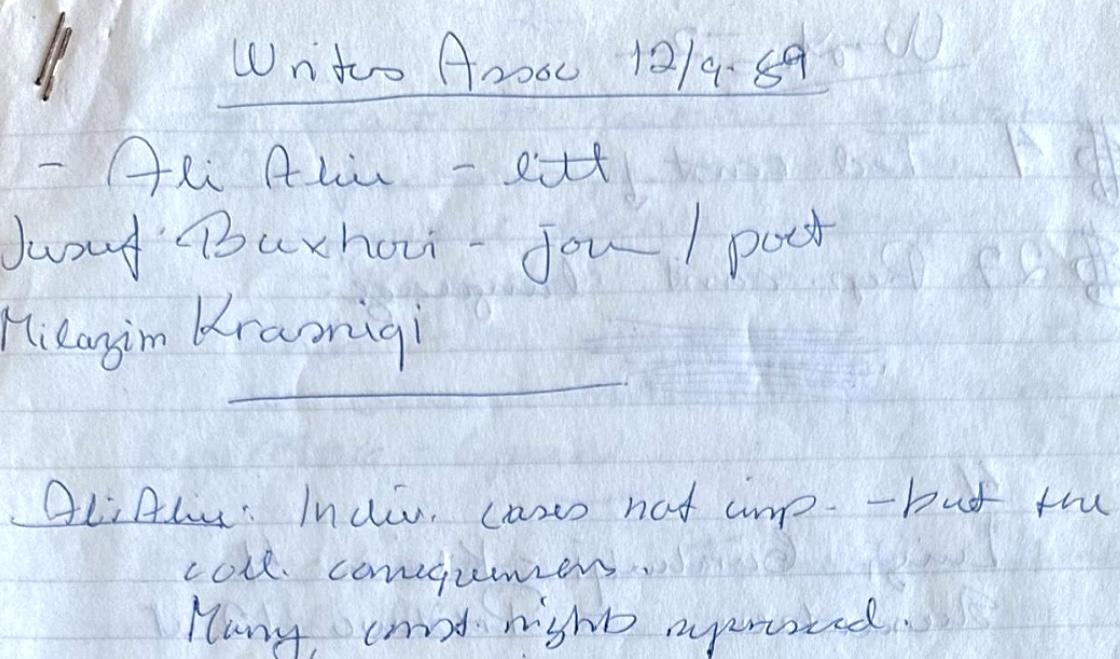 Writers Assoc 12/9-89
- Ali Aliu - litt
Jusuf Buxhovi - jou / poet
Milazim Krasniqi
Ali Aliu: Indiv. cases not imp. - but the
coll. consequenses.
Many const. rights repressed.